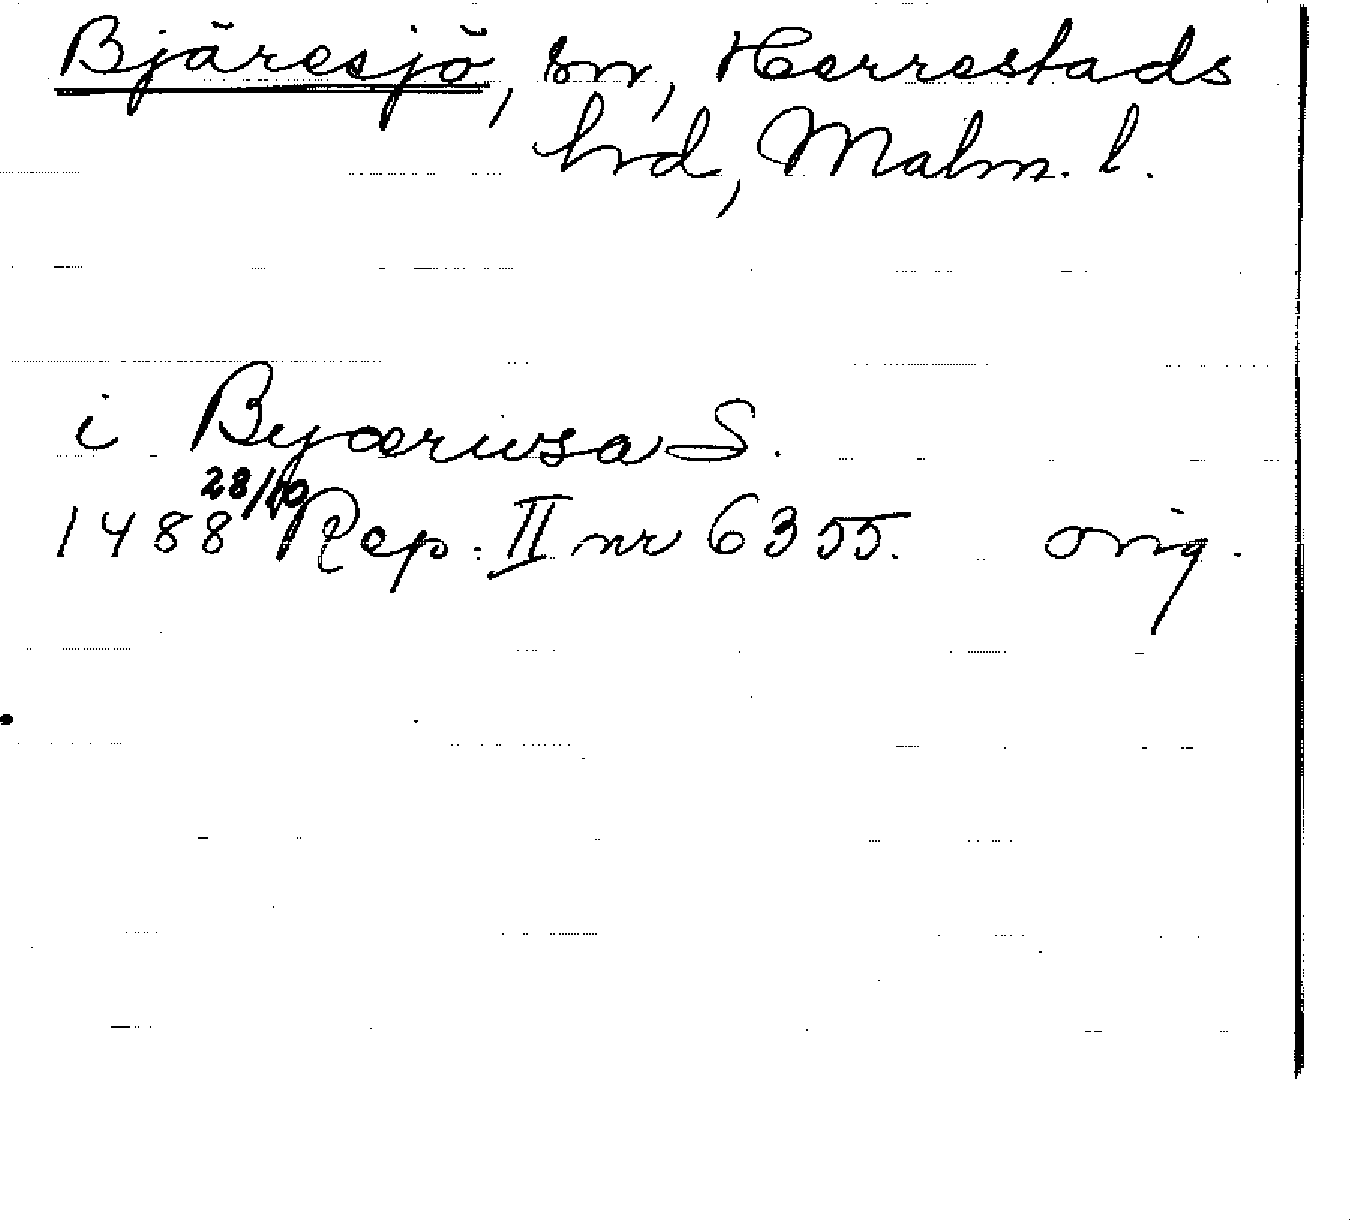 Bjäresjö, sn, Herrestads
hrd, Malm. l.
i Byæriusa S.
1488 28/10 Rep. II nr 6355. orig.